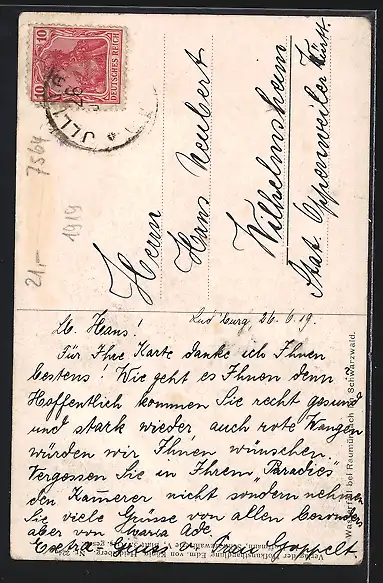 DEUTSCHES REICH
10 10
7564
21,-
1919
Herrn
Hans Neubert
Wilhelmsheim
Stat. Oppenweiler Württ.
Lud'burg, 26.6.19.
Lb. Hans!
Für Ihre Karte danke ich Ihnen
bestens! Wie geht es Ihnen denn?
Hoffentlich kommen Sie recht gesund
und stark wieder auch rote Wangen
würden wir Ihnen wünschen.
Vergessen Sie in Ihrem "Paradies"
den Kamerer nicht sondern nehmen
Sie viele Grüsse von allen besonders
aber von Maria Ade.
Extra Gruss v. Frau Goppelt.
bei Raumünzach im Schwarzwald.